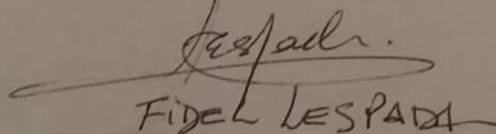 Lespada.
FiDEL LESPADA